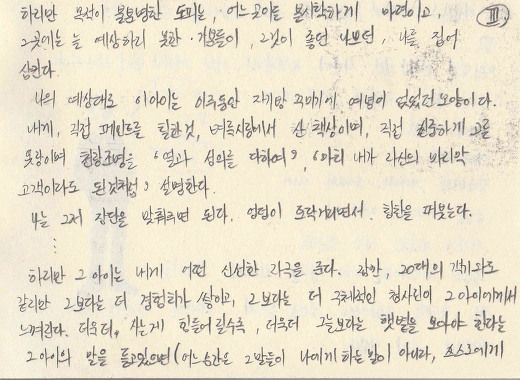 하지만 목적이 불분명한 도피는, 어느곳이든 불시착하게 마련이고, III
그곳에는 늘 예상하지 못한 기분들이, 그것이 좋던 나쁘던, 나를 집어
삼킨다
나의 예상대로 이아이는 이주동안 자기방 꾸미기에 여념이 없었던 모양이다.
내게, 직접 페인트를 칠한것, 벼룩시장에서 산 책상이며, 직접 신중하게 고른
옷장이며 천장조명을 "열과 성의를 다하여", "마치 내가 자신의 마지막
고객이라도 된것처럼" 설명한다.
나는 그저 장단을 맞춰주면 된다. 엉덩이 토닥거리면서 칭찬을 퍼붓는다.
⋮
하지만 그 아이는 내게 어떤 신선한 자극을 준다. 강한, 20대의 객기와도
같지만 그보다는 더 경험치가 쌓이고, 그보다는 더 구체적인 청사진이 그 아이에게서
느껴진다. 더욱더, 사는게 힘들어질수록, 더욱더 그늘보다는 햇볕을 보아야 한다는
그 아이의 말을 듣고있으면 (어느순간은 그말들이 나에게 하는말이 아니라, 스스로에게